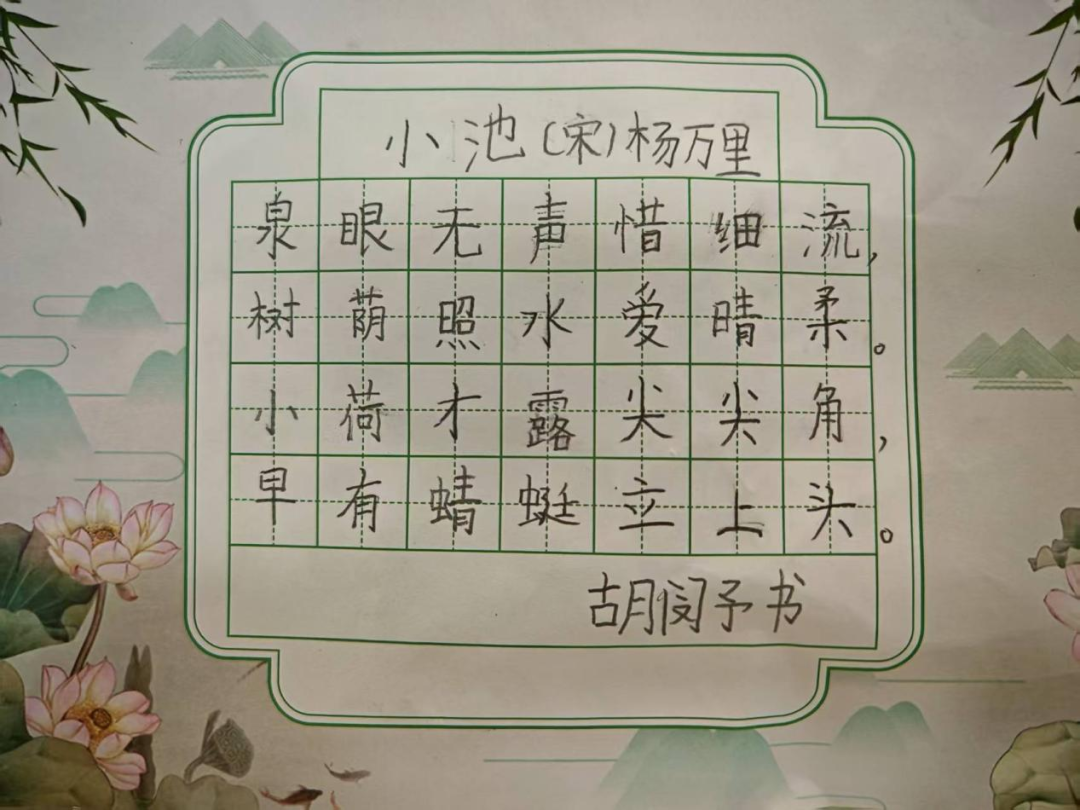 小池(宋)杨万里
泉眼无声惜细流,
树荫照水爱晴柔。
小荷才露尖尖角,
早有蜻蜓立上头。
胡闵予书